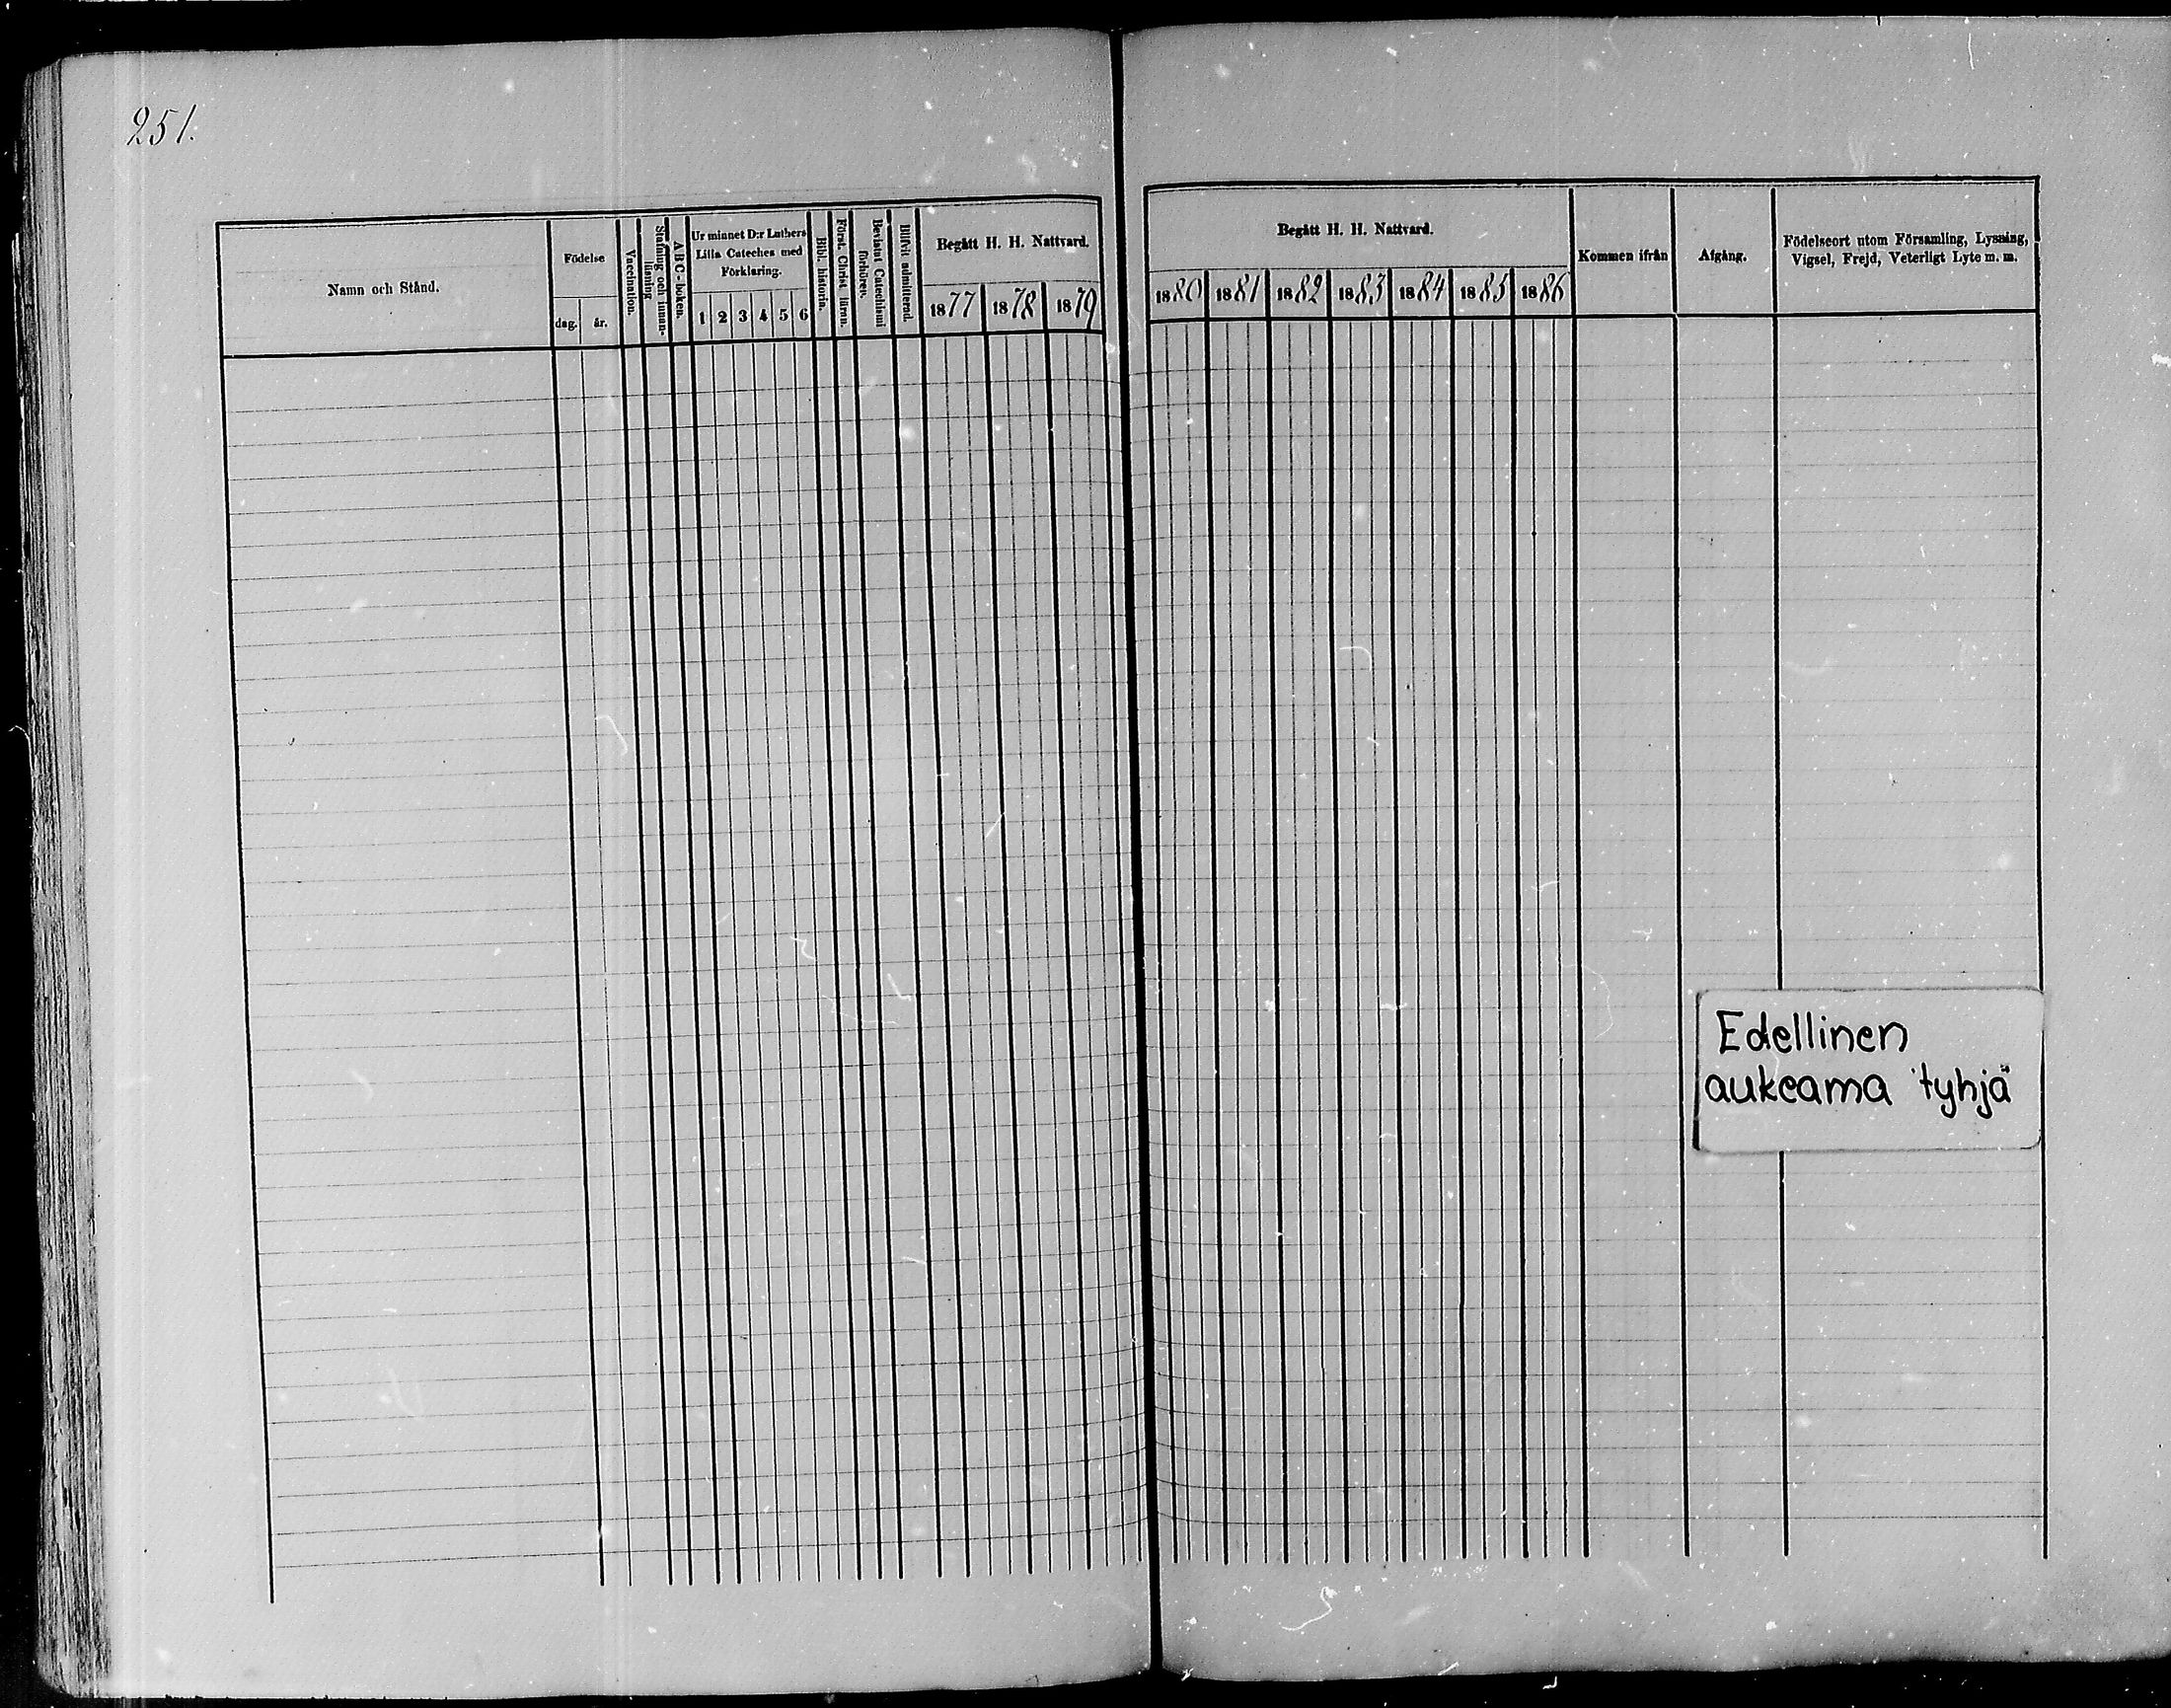 251.
Namn och Stånd.
Födelse
dag. år.
Vaccination.
Stafning och innan-
läsning
ABC-boken.
Ur minnet D:r Luthers
Lilla Cateches med
Förklaring.
1 2 3 4 5 6
Bibl. historia.
Först. Christ läran.
Bevistat Catechismi
förhören.
Blifvit admitterad.
Begått H. H. Nattvard.
1877 1878 1879
Begått H. H. Nattvard.
1880 1881 1882 1883 1884 1885 1886
Kommen ifrån
Afgång.
Födelseort utom Församling, Lysning,
Vigsel, Frejd, Veterligt Lyte m. m.
Edellinen
aukeama tyhjä